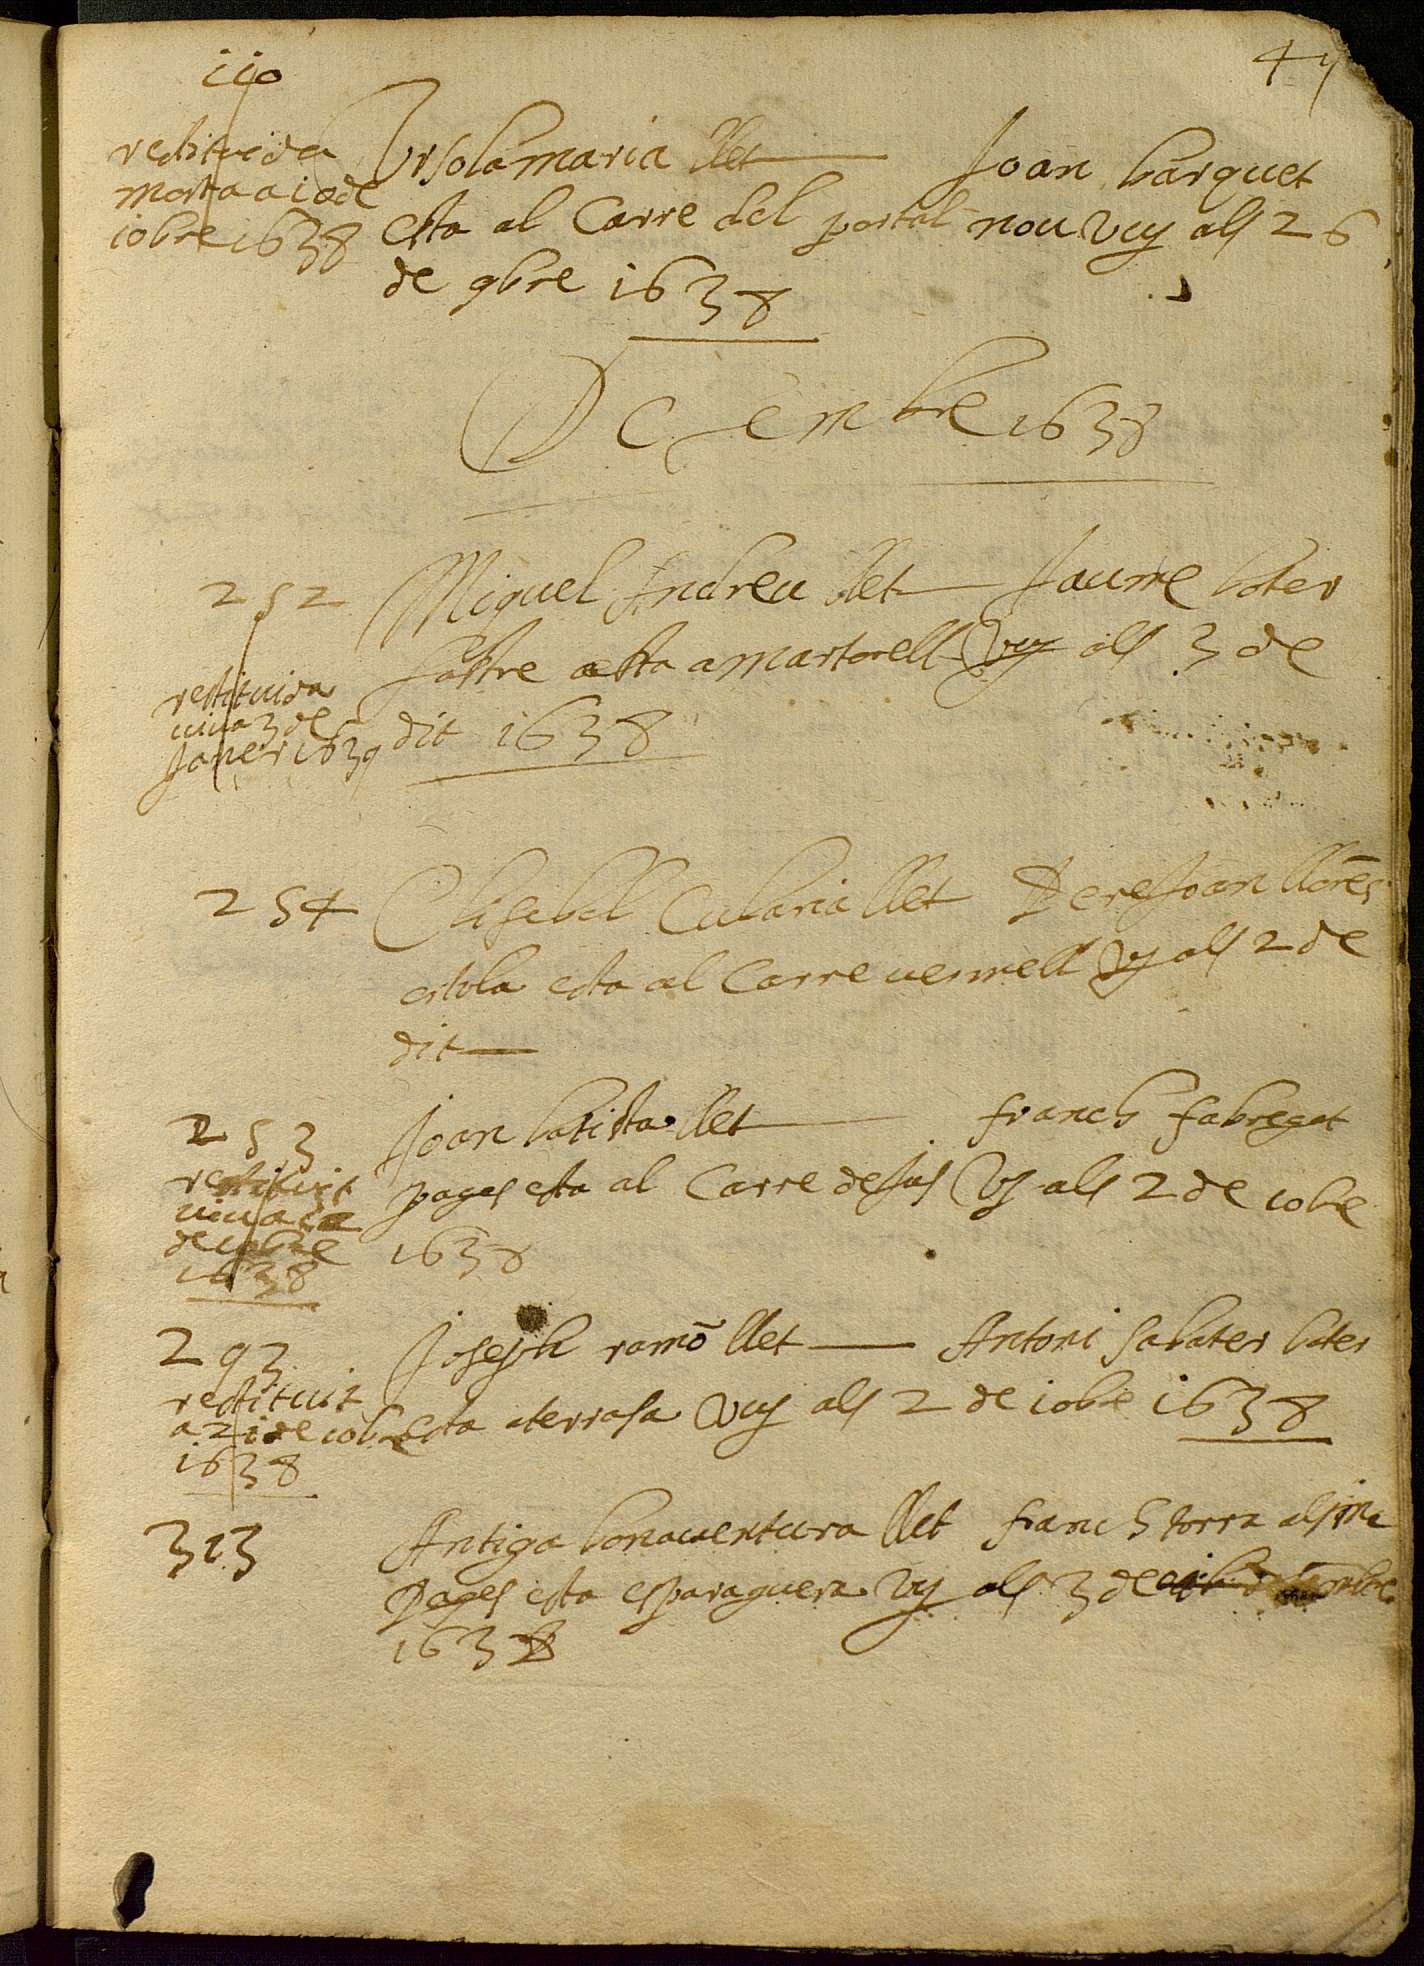 44
110
restituida
morta a 10 de
10bre 1638
Ursola maria llet Joan barquet
esta al Carre del portal nou vuy als 26
de 9bre 1638
Dezembre 1638
252
restituida
viva 3 de
Janer 1639
Miquel Andreu llet Jaume boter
sastre esta a martorell vuy als 3 de
dit 1638
254
Elisabel Eularia llet Pere Joan llorēs
estola esta al Carre vermell vy als 2 de
dit
253
restituit
viva
de 10bre
1638
Joan batista llet franch fabregat
pages esta al Carre de Jus vy als 2 de 10bre
1638
293
restituit
a 21 de 10bre
1638
Joseph ramō llet Antoni Sabater boter
esta a terrasa vuy als 2 de 10bre 1638
313
Antiga bonaventura llet franch torra alsina
pages esta esparaguera vy als 3 de
1638